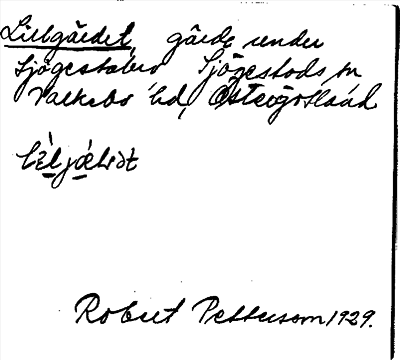 Lillgärdet, gärde under
Sjögestad Sjögestads sn
Valkebo hd, Östergötland
Robert Pettersson 1929.